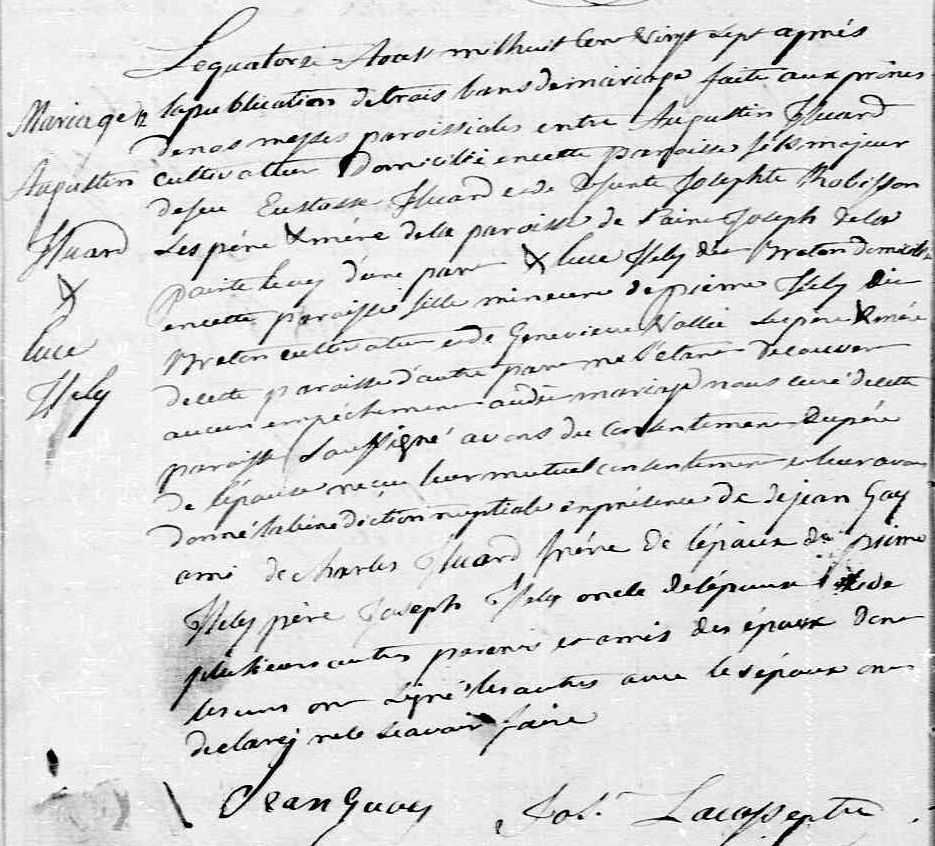 Le quatorze Aoust mil huit cent vingt sept après
Mariage de
la publication de trois bans de mariage faite aux prônes
de nos messes paroissiales entre Augustin Huard
Augustin
cultivateur Domicilié en cette paroisse fils majeur
de feu Eustasse Huard et de défunte Josephte Robisson
Huard
Les père & mère de la paroisse de Saint Joseph de la
&
pointe Levy d'une part & Luce Hely dit Breton domiciliée
en cette paroisse fille mineure de pierre Hely dit
Luce
Breton cultivateur et de Genevieve Vallée Les père & mère
Hely
de cette paroisse d'autre part ne s'étant découvert
aucun empéchement au dit mariage nous curé de cette
paroisse Soussigné avons du consentement du père
de l'épouse reçu leur mutuel consentement et leur avons
donné la bénédiction nuptiale en présence de de jean Gay
ami de charles Huard frère de l'époux de pierre
Hely père Joseph Hely oncle de l'épouse et de
plusieurs autres parens et amis des époux dont
les uns ont signé les autres avec les époux ont
declaréj ne le scavoir faire
Jean Guay Jos. Lacasse ptre